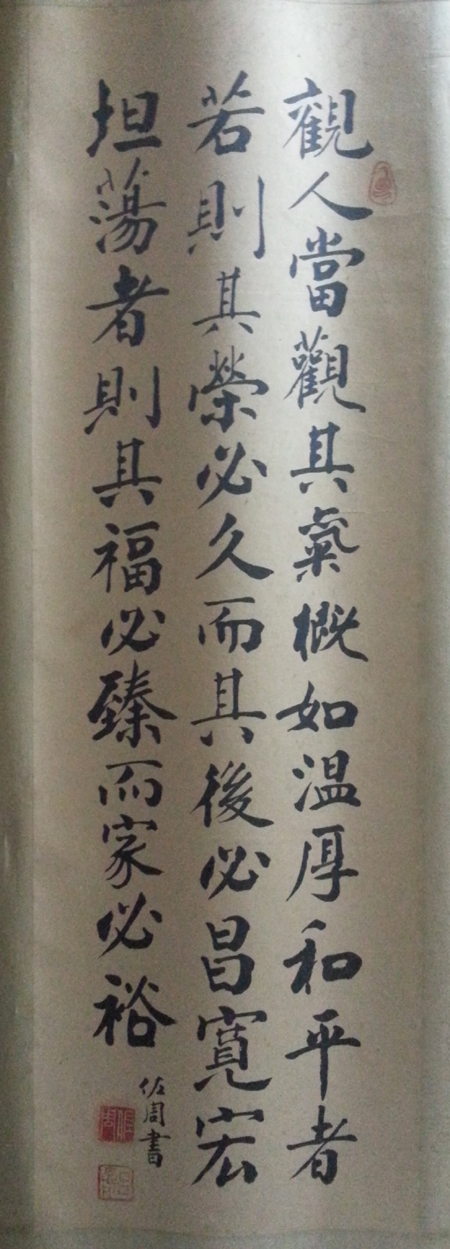 觀人當觀其氣概如温厚和平者
若則其榮必久而其後必昌寬宏
坦蕩者則其福必臻而家必裕
佐周書